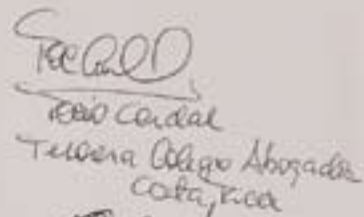 Rocío Cerdas
Tesorera Colegio Abogados
Costa Rica